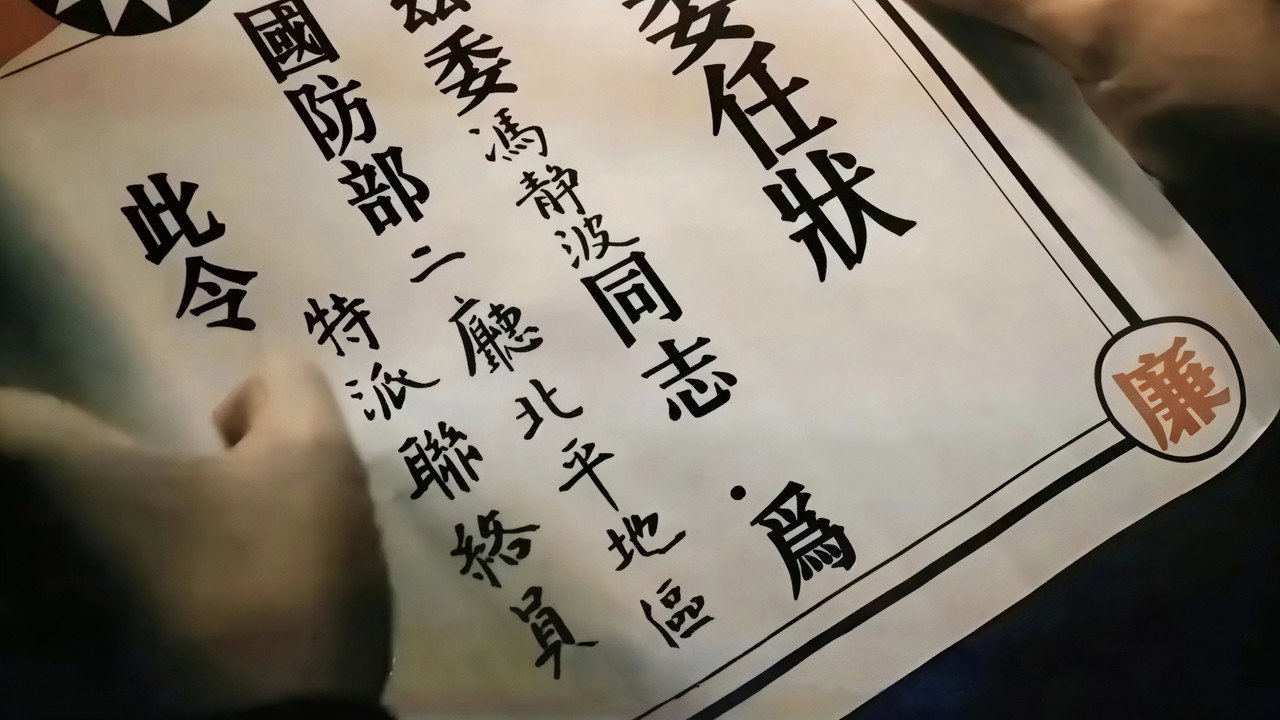 委任狀
茲委馮静波同志·為
國防部二廳北平地區
特派聯絡員
此令
廉